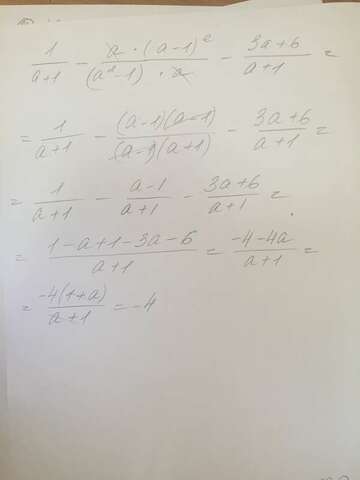 1/(a+1) - (a·(a-1)²)/((a²-1)·a) - (3a+6)/(a+1) =
= 1/(a+1) - ((a-1)(a-1))/((a-1)(a+1)) - (3a+6)/(a+1) =
= 1/(a+1) - (a-1)/(a+1) - (3a+6)/(a+1) =
= (1-a+1-3a-6)/(a+1) = (-4-4a)/(a+1) =
= (-4(1+a))/(a+1) = -4